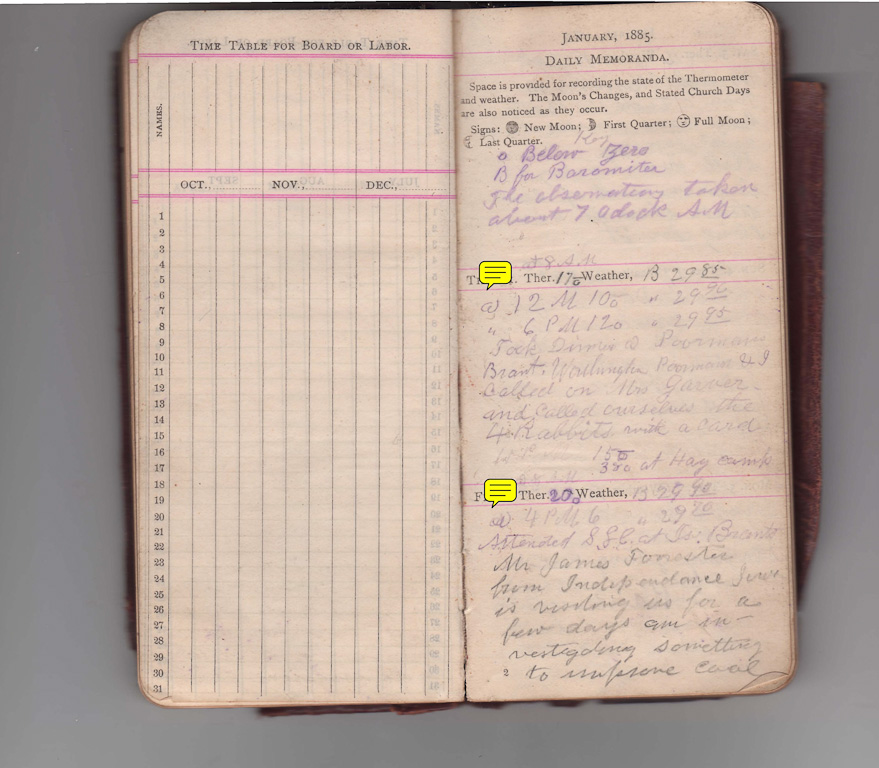 TIME TABLE FOR BOARD OR LABOR.
NAMES.
OCT., NOV., DEC.,
1
2
3
4
5
6
7
8
9
10
11
12
13
14
15
16
17
18
19
20
21
22
23
24
25
26
27
28
29
30
31
JANUARY, 1885.
DAILY MEMORANDA.
Space is provided for recording the state of the Thermometer
and weather. The Moon's Changes, and Stated Church Days
are also noticed as they occur.
Signs: New Moon; First Quarter; Full Moon;
Last Quarter.
Key
o Below Zero
B for Barometer
The observations taken
about 7 Oclock A M
at 8 A.M
Ther. 17o Weather, B 29 85
@ 12 M 10o " 29 90
" 6 P M 12o " 29 95
Took Dinner @ Poormans
Brant, Worthington Poorman & I
Called on Mrs Garver
and called ourselves the
4 Rabbits with a card
15o
35o at Hay camp
Ther. 20o Weather, B 29 90
@ 4 P M 6 " 29
Attended S.S.C. at Is. Brants
Mr James Forrester
from Independance Iowa
is visiting us for a
few days am in-
vestigating something
2 to improve coal